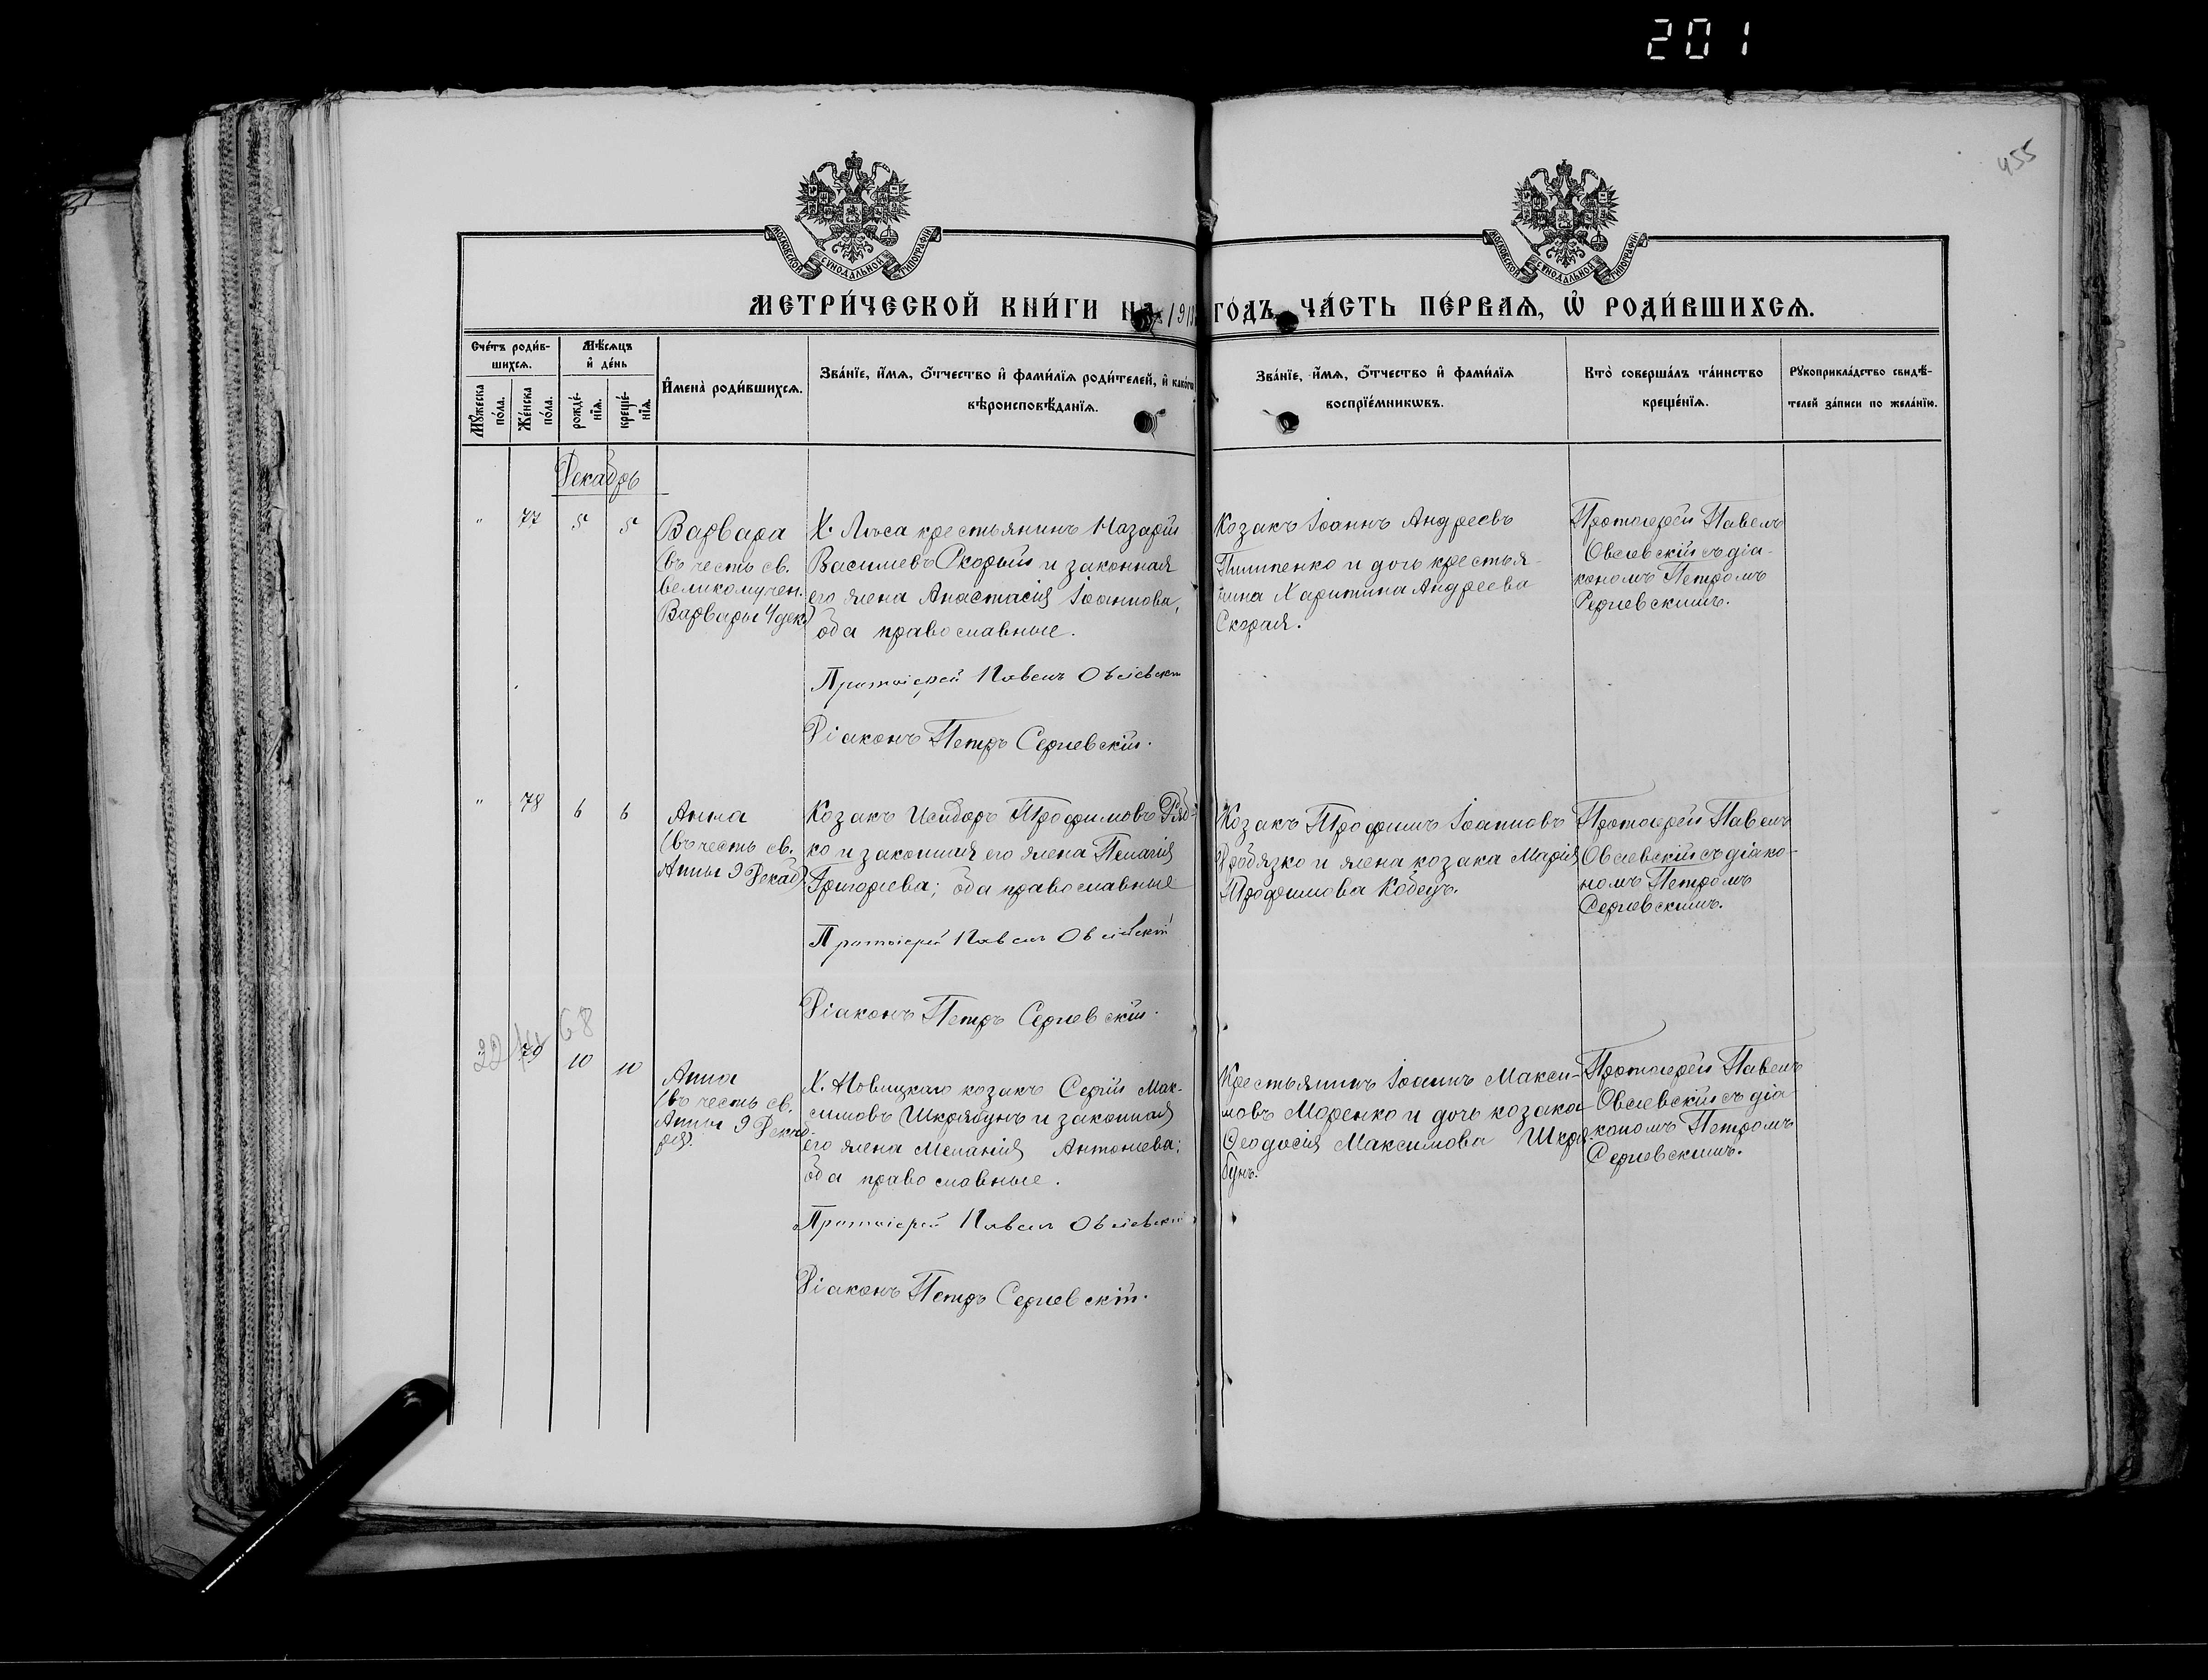 201
455
МОСКОВСКОЙ СѴНОДАЛЬНОЙ ТИПОГРАФІИ
МОСКОВСКОЙ СѴНОДАЛЬНОЙ ТИПОГРАФІИ
МЕТРИ́ЧЕСКОЙ КНИ́ГИ НА ГО́ДЪ, ЧА́СТЬ ПЕ́РВАѦ, Ѽ РОДИ́ВШИХСѦ.
Сче́тъ роди́в-
шихсѧ.
Мѹжеска по́ла.
Же́нска по́ла.
Мѣ́сѧцъ
и҆ де́нь
рожде́-
нїѧ.
креще́-
нїѧ.
И҆мена̀ роди́вшихсѧ.
Зва́нїе, и҆́мѧ, ѻ҆́тчество и҆ фами́лїѧ роди́телей, и҆ како́гѡ
вѣроисповѣ́данїѧ.
Зва́нїе, и҆́мѧ, ѻ҆́тчество и҆ фами́лїѧ
воспрїе́мникѡвъ.
Кто̀ соверша́лъ та́инство
креще́нїѧ.
Рѹкоприкла́дство свидѣ́-
телей за́писи по жела́нїю.
Декабрь
" 77 5 5
Варвара
(въ честь св.
великомучен.
Варвары 4 дек.)
Х. Лѣса крестьянинъ Назарій
Васильевъ Скорый и законная
его жена Анастасія Іоаннова,
оба православные.
Протоіерей Павелъ Овсіевскій
Діаконъ Петръ Сергіевскій.
Козакъ Іоаннъ Андреевъ
Пилипенко и дочь крестья-
нина Харитина Андреева
Скорая.
Протоіерей Павелъ
Овсіевскій съ діа-
кономъ Петромъ
Сергіевскимъ.
" 78 6 6
Анна
(въ честь св.
Анны 9 Декаб.)
Козакъ Исидоръ Трофимовъ
ко и законная его жена Пелагія
Григорьева; оба православные
Протоіерей Павелъ Овсіевскій
Діаконъ Петръ Сергіевскій.
Козакъ Трофимъ Іоанновъ
Дробязко и жена козака Марія
Трофимова Кобецъ.
Протоіерей Павелъ
Овсіевскій съ діако-
номъ Петромъ
Сергіевскимъ.
68
79 10 10
Анна
(въ честь св.
Анны 9 Декаб-
ря).
Х. Новицкаго козакъ Сергій Мак-
симовъ Шкрябунъ и законная
его жена Меланія Антоніева;
оба православные.
Протоіерей Павелъ Овсіевскій
Діаконъ Петръ Сергіевскій.
Крестьянинъ Іоаннъ Макси-
мовъ Моренко и дочь козака
Ѳеодосія Максимова Шкря-
бунъ.
Протоіерей Павелъ
Овсіевскій съ діа
кономъ Петромъ
Сергіевскимъ.